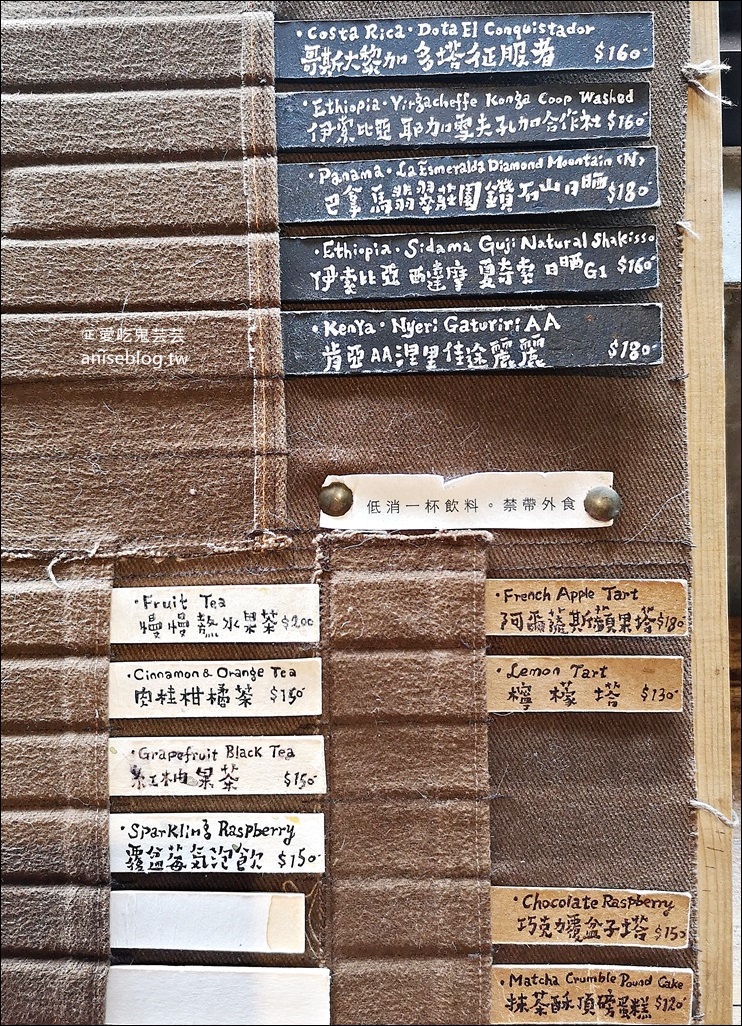 ·Costa Rica·Dota El Conquistador
哥斯大黎加 多塔征服者 $160-
·Ethiopia·Yirgacheffe Konga Coop Washed
伊索比亞 耶加雪夫孔加合作社 $160-
·Panama·La Esmeralda Diamond Mountain (N)
巴拿馬翡翠莊園鑽石山日晒 $180-
·Ethiopia·Sidama Guji Natural Shakisso
伊索比亞 西達摩 夏奇索 日晒G1 $160-
·Kenya·Nyeri Gaturiri AA
肯亞AA涅里佳途麗麗 $180-
愛吃鬼芸芸
aniseblog.tw
低消一杯飲料。禁帶外食
·Fruit Tea
慢慢熬水果茶 $200
·Cinnamon & Orange Tea
肉桂柑橘茶 $150-
·Grapefruit Black Tea
紅柚果茶 $150-
·Sparkling Raspberry
覆盆莓氣泡飲 $150-
·French Apple Tart
阿爾薩斯蘋果塔 $180-
·Lemon Tart
檸檬塔 $130-
·Chocolate Raspberry
巧克力覆盆子塔 $150
·Matcha Crumble Pound Cake
抹茶酥頂磅蛋糕 $120